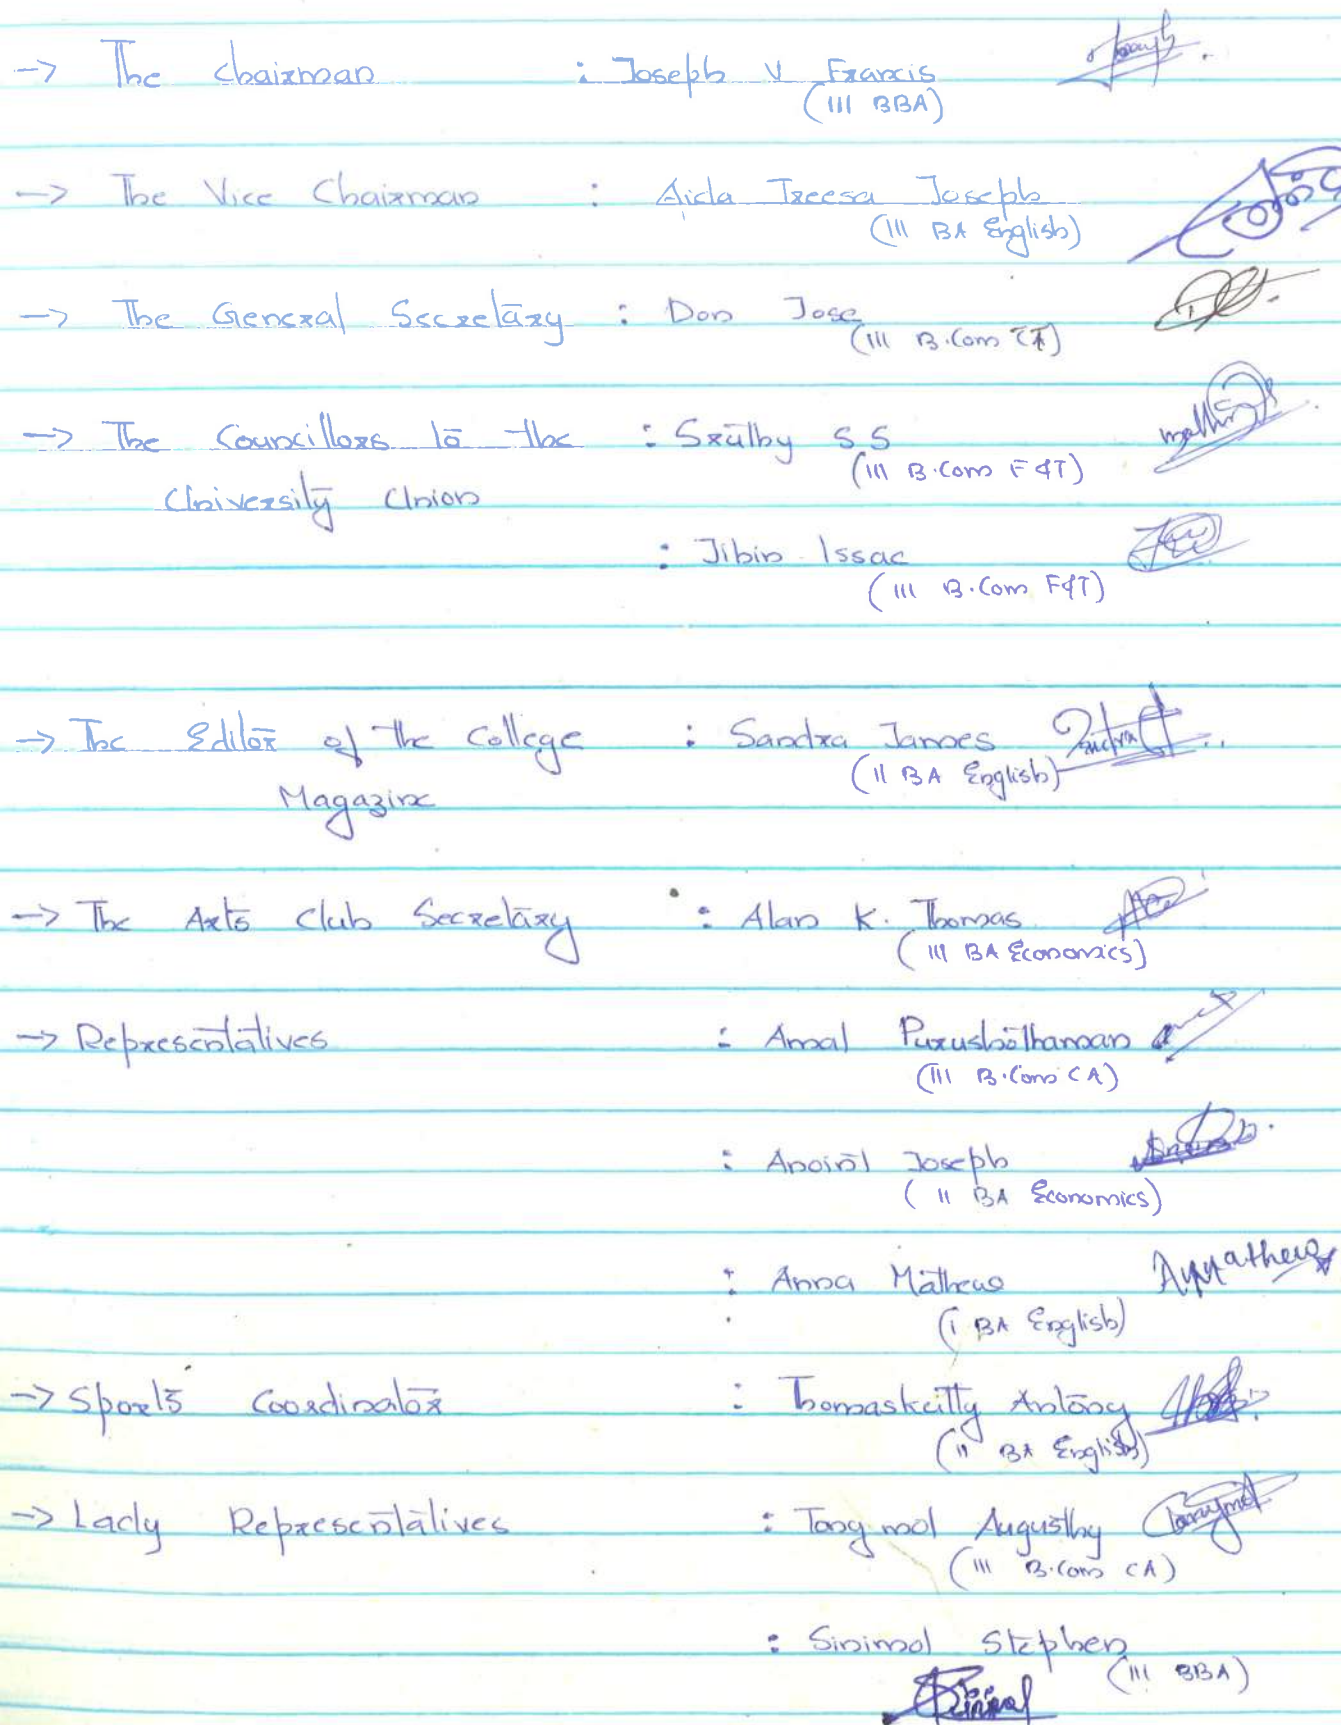 -> The Chairman : Joseph V Francis
(III BBA)
-> The Vice Chairman : Aida Treesa Joseph
(III BA English)
-> The General Secretary : Don Jose
(III B.Com
-> The Councillors to the : Sruthy S S
(III B.Com F&T)
University Union
: Jibin Issac
(III B.Com F&T)
-> The Editor of the College : Sandra James
(II BA English)
Magazine
-> The Arts Club Secretary : Alan K. Thomas
(III BA Economics)
-> Representatives : Amal Purushothaman
(III B.Com CA)
: Anoint Joseph
(II BA Economics)
: Anna Mathew
(I BA English)
-> Sports Coordinator : Thomaskutty Antony
(II BA English)
-> Lady Representatives : Tony mol Augusthy
(III B.Com CA)
: Sinimol Stephen
(III BBA)